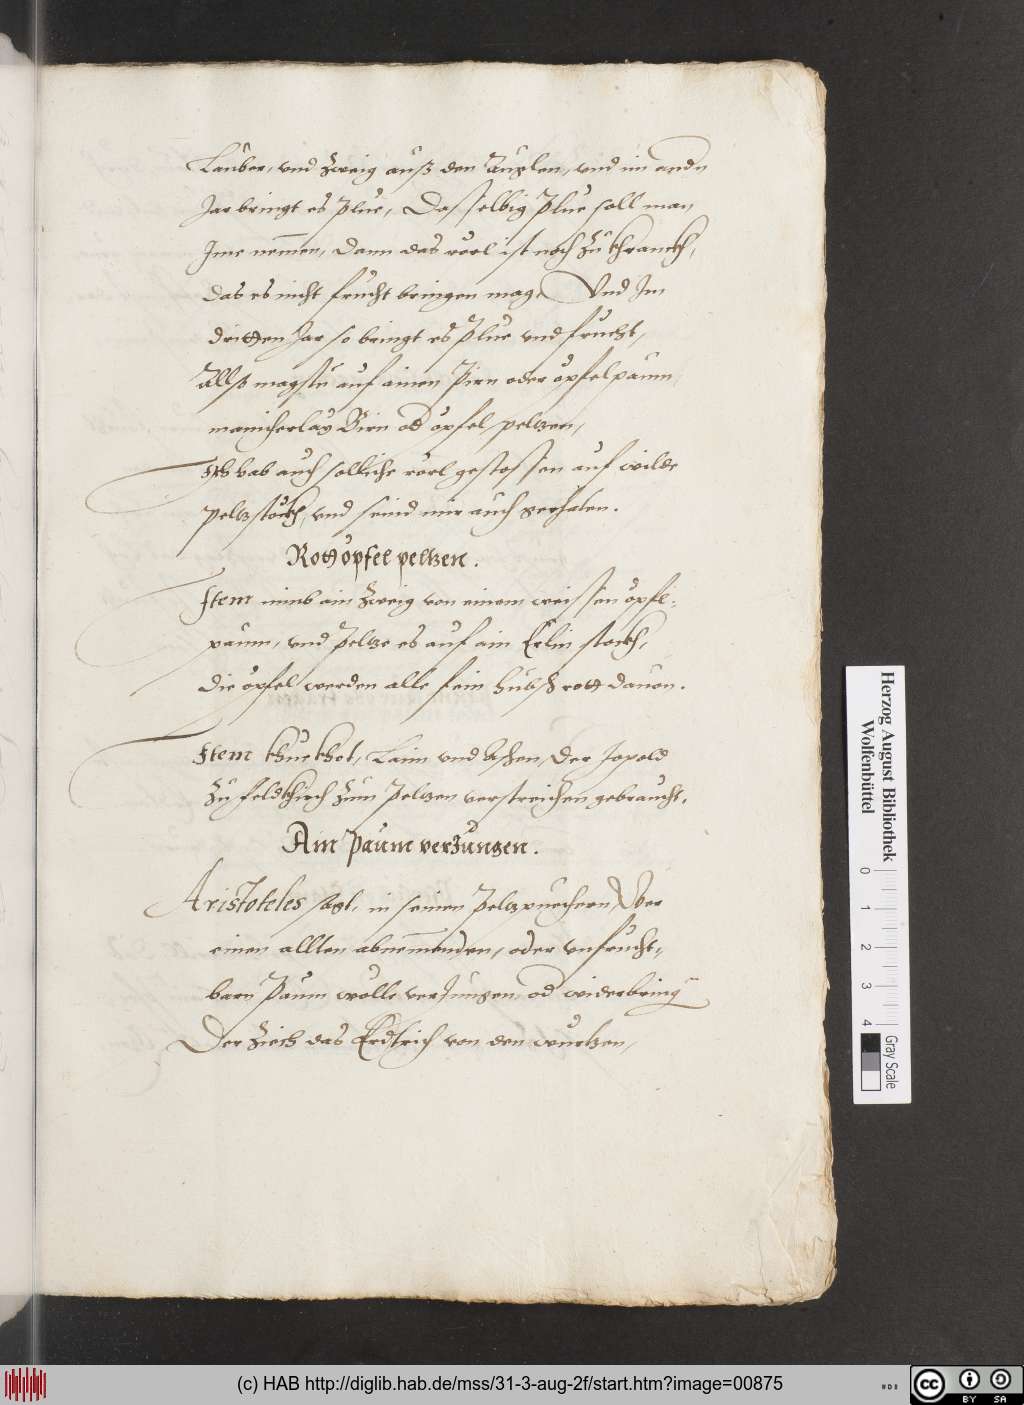 Lauber, vnd Zweig auß den Auglen, vnd im andn
Jar bringt es Plue, Dasselbig Plue soll man
Jme nemen, dann das rörl ist noch zu khranckh,
das es nicht frucht bringen mag. Vnd Jm
dritten Jar so bringt es Plue vnd frucht,
Allß magstu auf ainen Pirn oder öpfelpaum
manicherlay Birn od öpfel peltzen,
Jch hab auch solliche rörl gestossen auf wilde
peltzstöckh, vnd seind mir auch gerhaten.
Rott öpfel peltzen.
Item nimb ain Zweig von einem weissen öpfl-
paum, vnd Peltze es auf ain Erlin stockh,
die öpfel werden alle fein hübsch rott dauon.
Item khuekhot, Laim vnd Aschen, der Jopold
zu feldkhirch zum Peltzen verstreichen gebraucht.
Am Paum verJungen.
Aristoteles sagt, in seinen Peltzpuechern, Wer
einen allten abnemenden, oder vnfrucht-
barn Paum wölle verJungen, od widerbring
Der Ziech das Erdtrich von den wurtzen,
Herzog August Bibliothek
Wolfenbüttel
0 1 2 3 4
Gray Scale
(c) HAB http://diglib.hab.de/mss/31-3-aug-2f/start.htm?image=00875
cc BY SA